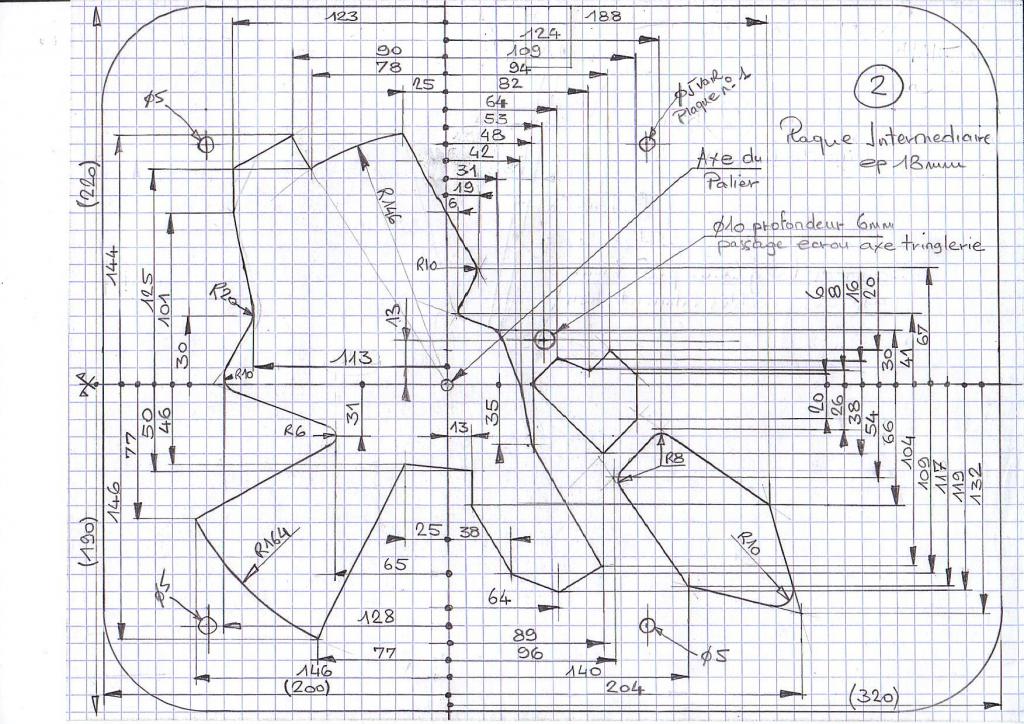 123
188
124
90
109
78
94
25
82
64
53
48
42
31
19
6
Ø5
Ø5
Plaque n° 1
2
Plaque Intermédiaire
ep 18mm
Axe du
Palier
Ø10 profondeur 6mm
passage ecrou axe tringlerie
R146
R10
(220)
144
125
101
30
R20
113
R10
13
6
8
16
20
30
41
67
A
77
50
46
31
R6
13
35
20
26
38
54
66
104
109
117
119
132
R8
(190)
146
R164
25
38
65
R10
64
128
89
77
96
146
140
(200)
204
(320)
Ø5